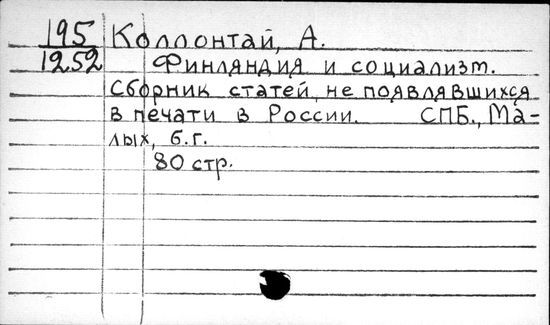 195 Коллонтай, А.
1252 Финляндия и социализм.
Сборник статей, не появлявшихся
в печати в России. СПБ., Ма-
лых, б.г.
80 стр.